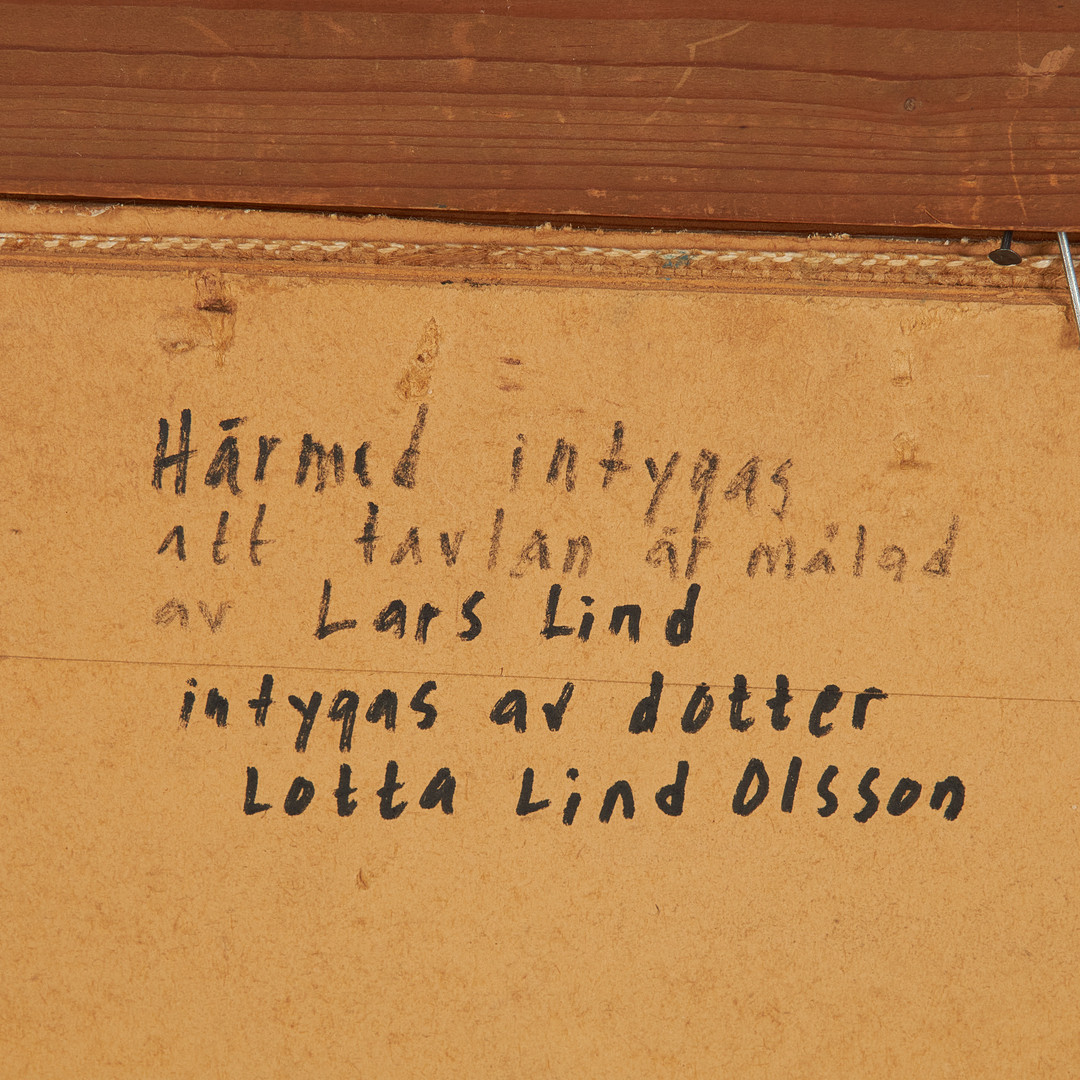 Härmed intygas
att tavlan är målad
av Lars Lind
intygas av dotter
Lotta Lind Olsson